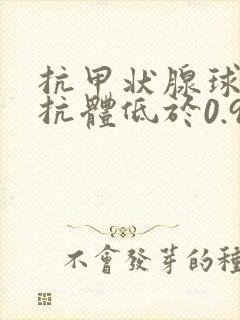 抗甲状腺球
抗體低於0.9
不會發芽的種